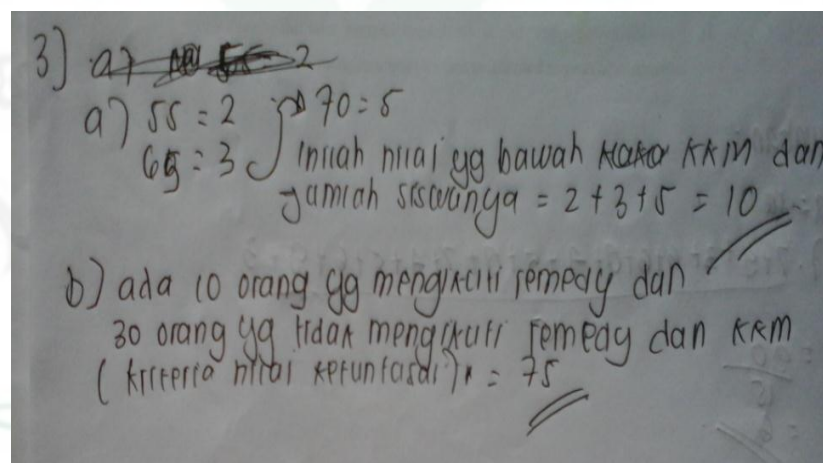 3)
a) 55 = 2 70 = 5
65 = 3 Inilah nilai yg bawah KKM dan
Jumlah siswanya = 2 + 3 + 5 = 10
b) ada 10 orang yg mengikuti remedy dan
30 orang yg tidak mengikuti remedy dan KKM
(kriteria nilai ketuntasan) = 75